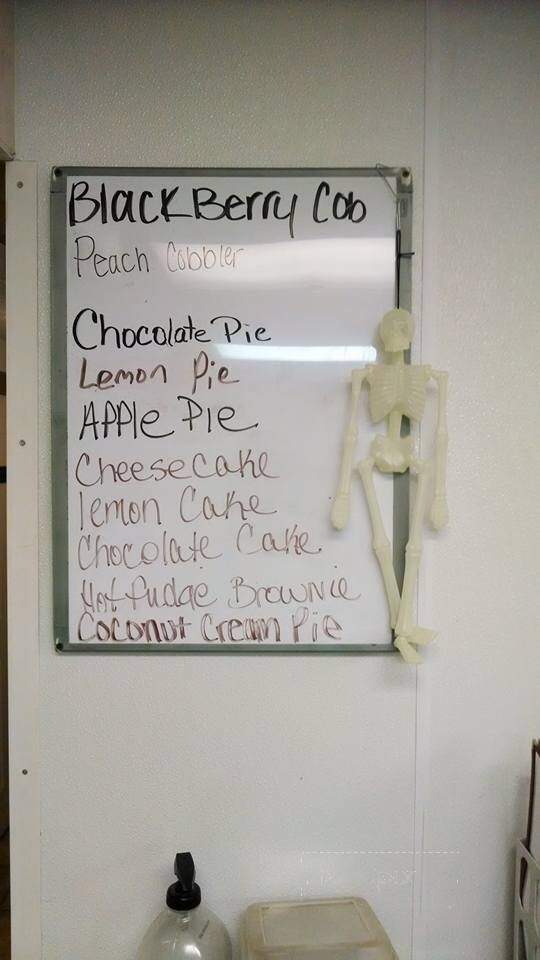 BlackBerry Cob
Peach Cobbler
Chocolate Pie
Lemon Pie
Apple Pie
Cheesecake
lemon Cake
Chocolate Cake
Hot fudge Brownie
Coconut Cream Pie